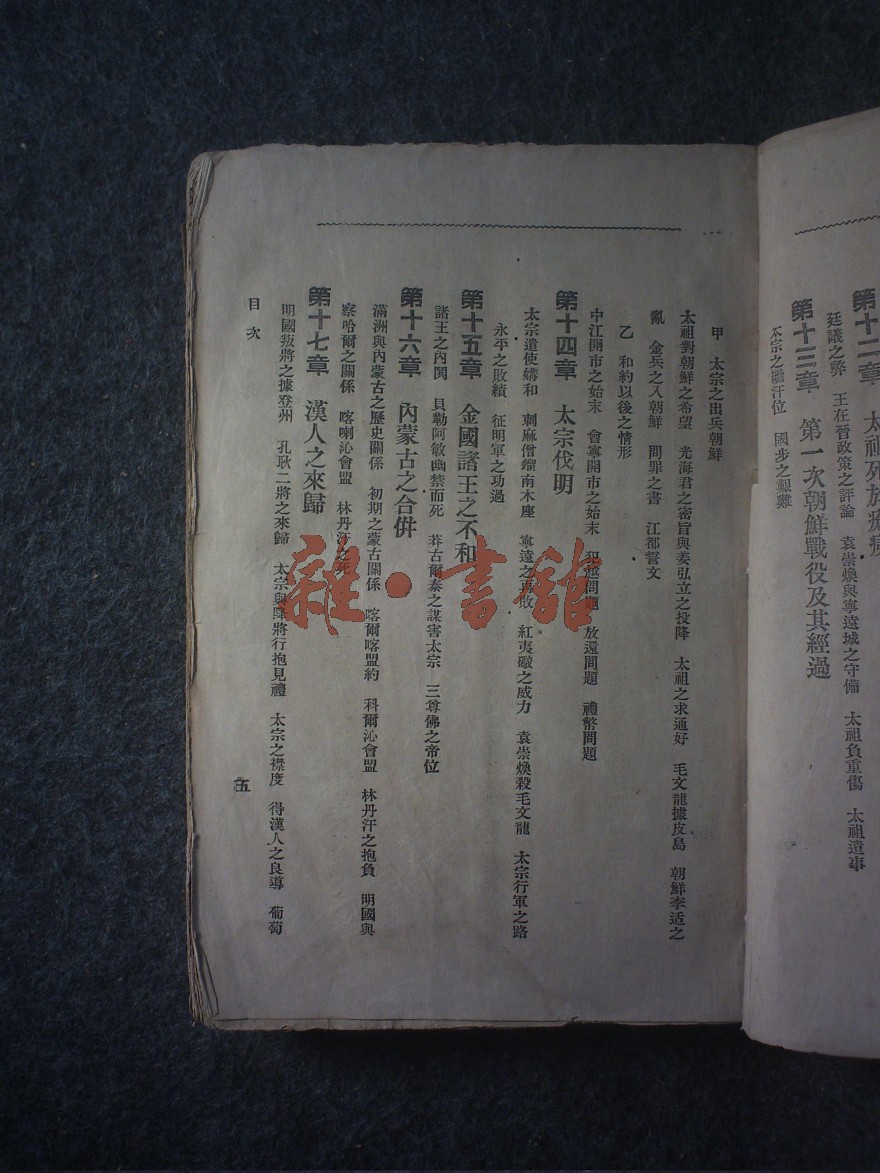 第十二章　太祖死於癰疽
廷議之弊　王在晉政策之評論　袁崇煥與寧遠城之守備　太祖負重傷　太祖遺事
第十三章　第一次朝鮮戰役及其經過
太宗之繼汗位　國步之艱難
甲　太宗之出兵朝鮮
太祖對朝鮮之希望　光海君之密旨與姜弘立之投降　太祖之求通好　毛文龍據皮島　朝鮮李适之
亂　金兵之入朝鮮　問罪之書　江都誓文
乙　和約以後之情形
中江開市之始末　會寧開市之始末　犯越問題　放還問題　禮幣問題
第十四章　太宗伐明
太宗遣使媾和　刺麻僧鎦南木座　寧遠之再敗　紅夷礮之威力　袁崇煥殺毛文龍　太宗行軍之路
永平之敗績　征明軍之功過
第十五章　金國諸王之不和
諸王之內鬨　貝勒阿敏幽禁而死　莽古爾泰之謀害太宗　三尊佛之帝位
第十六章　內蒙古之合併
滿洲與內蒙古之歷史關係　初期之蒙古關係　喀爾喀盟約　科爾沁會盟　林丹汗之抱負　明國與
察哈爾之關係　喀喇沁會盟　林丹汗之死
第十七章　漢人之來歸
明國叛將之據登州　孔耿二將之來歸　太宗與降將行抱見禮　太宗之襟度　得漢人之良導　葡萄
目次
五
雜·書館